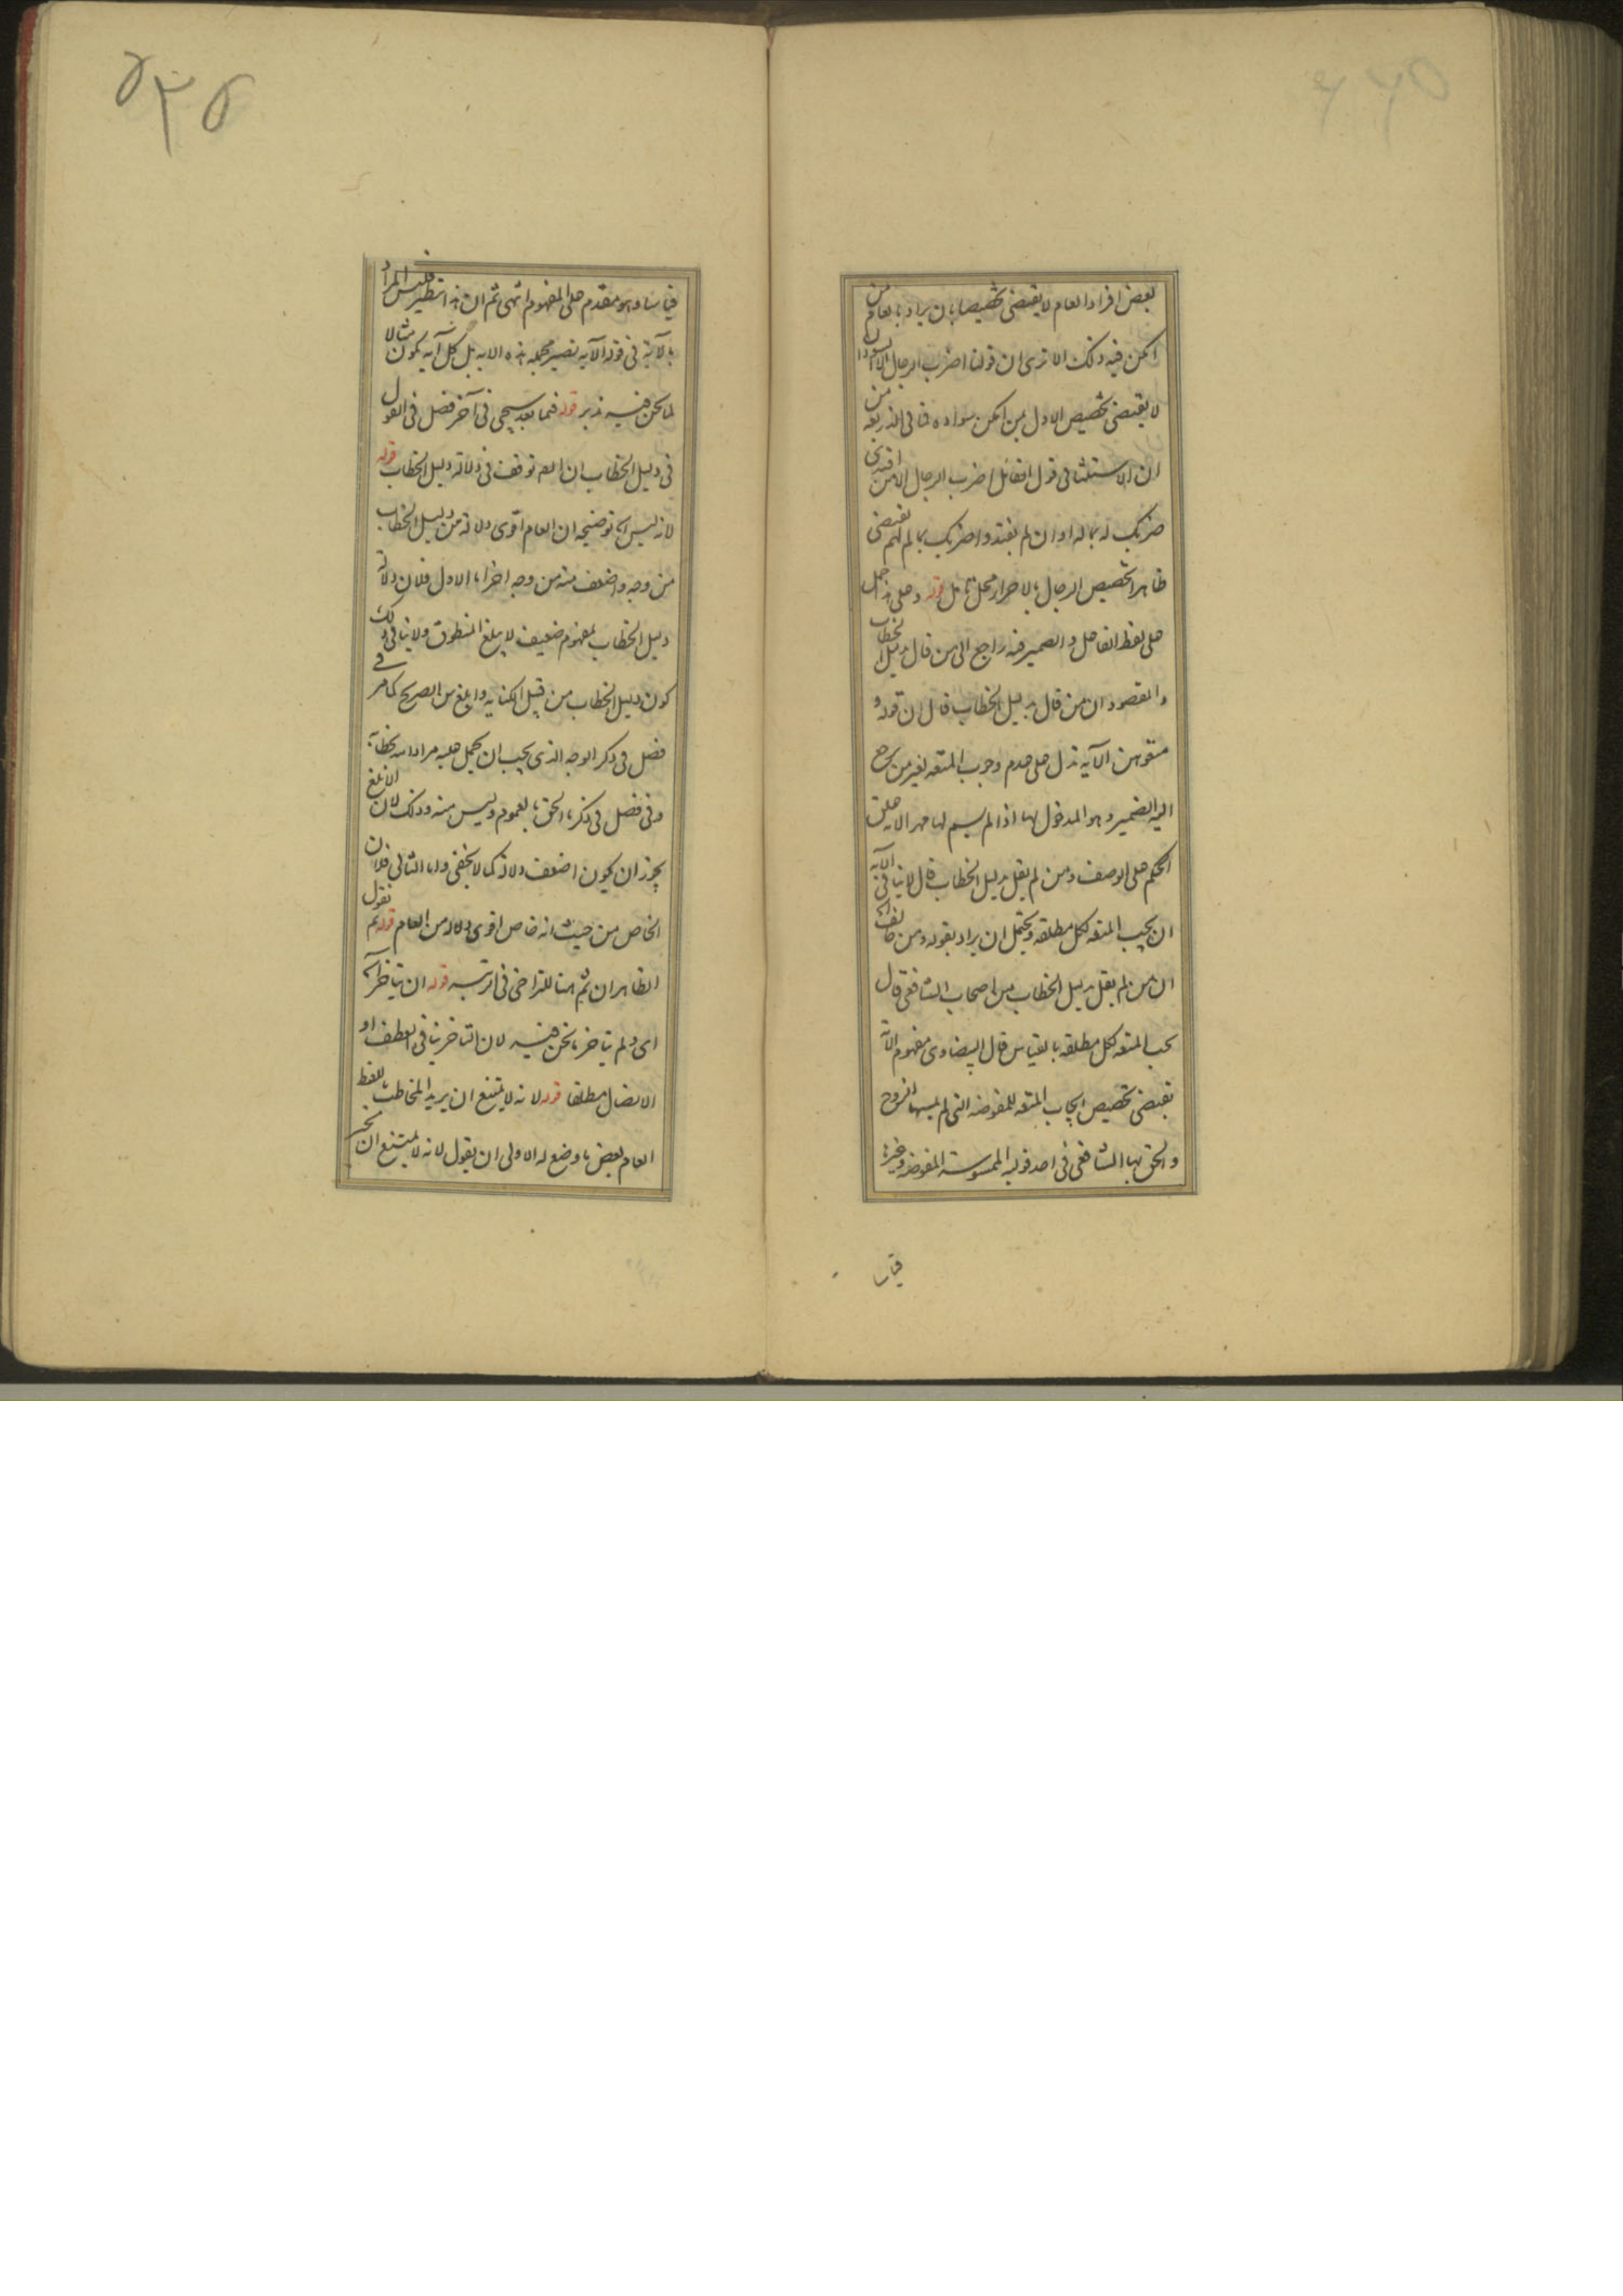 بعض افراد العام لا يقتضى تخصيصا بان يراد بالعام من
امكن فيه ذلك الا ترى ان قولنا اضرب الرجال الا السودان
لا يقتضى تخصيص الاول بمن امكن سواده فما فى الذريعة من
ان الاستثنا فى قول القائل اضرب الرجال الا من افتدى
ضربك له بماله او ان لم يفتدوا ضربك بمالهم يقتضى
ظاهرا تخصيص الرجال بالاحرار محل تامل قوله وعلى هذا حمل
على لفظ الفاعل والضمير فيه راجع الى من قال بدليل الخطاب
والمقصود ان من قال بدليل الخطاب قال ان قوله و
متعوهن الآية تدل على عدم وجوب المتعه لغير من يرجع
اليه الضمير وهو المدخول بها اذا لم يسم لها مهر الا
الحكم على الوصف ومن لم يقل بدليل الخطاب قال لا ينافى الآية
ان يجب المتعه لكل مطلقه ويحتمل ان يراد بقوله ومن خالف
ان من لم يقل بدليل الخطاب من اصحاب الشافعى قال
يجب المتعه لكل مطلقه بالقياس قال البيضاوى مفهوم الآية
يقتضى تخصيص ايجاب المتعه للمفوضه التى لم يمسها الزوج
والحق بها الشافعى فى احد قوليه الممسوسة المفوضه وغيرها
قياسا
٥٣٥
قياسا وهو مقدم على المفهوم انتهى ثم ان هذا تنظير فليس المراد
بالآية فى قوله الآية تصير مجمله هذه الآيه بل كل آية يكون مثالا
لما نحن فيه تدبر قوله فيما بعد سيجى فى آخر فصل فى القول
فى دليل الخطاب ان المص توقف فى دلالة دليل الخطاب قوله
لانه ليس الخ توضيحه ان العام اقوى دلالة من دليل الخطاب
من وجه واضعف منه من وجه آخر اما الاول فلان دلالة
دليل الخطاب بمفهوم ضعيف لا يبلغ المنطوق ولا ينافى ذلك
كون دليل الخطاب من قبيل الكنايه وابلغ من الصريح كما مر فى
فصل فى ذكر الوجه الذى يجب ان يحمل عليه مراد الله بخطابه
وفى فصل فى ذكر ما الحق بالعموم وليس منه وذلك لان الابلغ
يجوز ان يكون اضعف دلالة كما لا يخفى واما الثانى فلان
الخاص من حيث انه خاص اقوى دلالة من العام قوله ثم نقول
الظاهر ان ثم هنا للتراخى فى الرتبه قوله ان يتاخر
اى ولم يتاخر ما نحن فيه لان التاخر ينافى العطف او
الاتصال مطلقا قوله لانه لا يمتنع ان يريد المخاطب باللفظ
العام بعض ما وضع له الاولى ان يقول لانه لا يمتنع ان